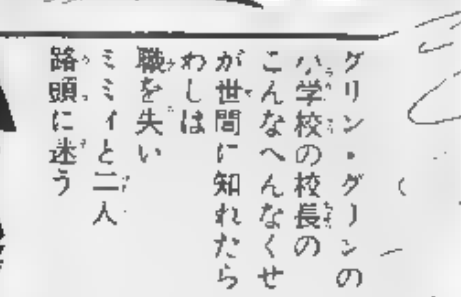 グリン・グリンの
小学校の校長の
こんなへんなくせ
が世間に知れたら
わしは
職を失い
ミミィと二人
路頭に迷う